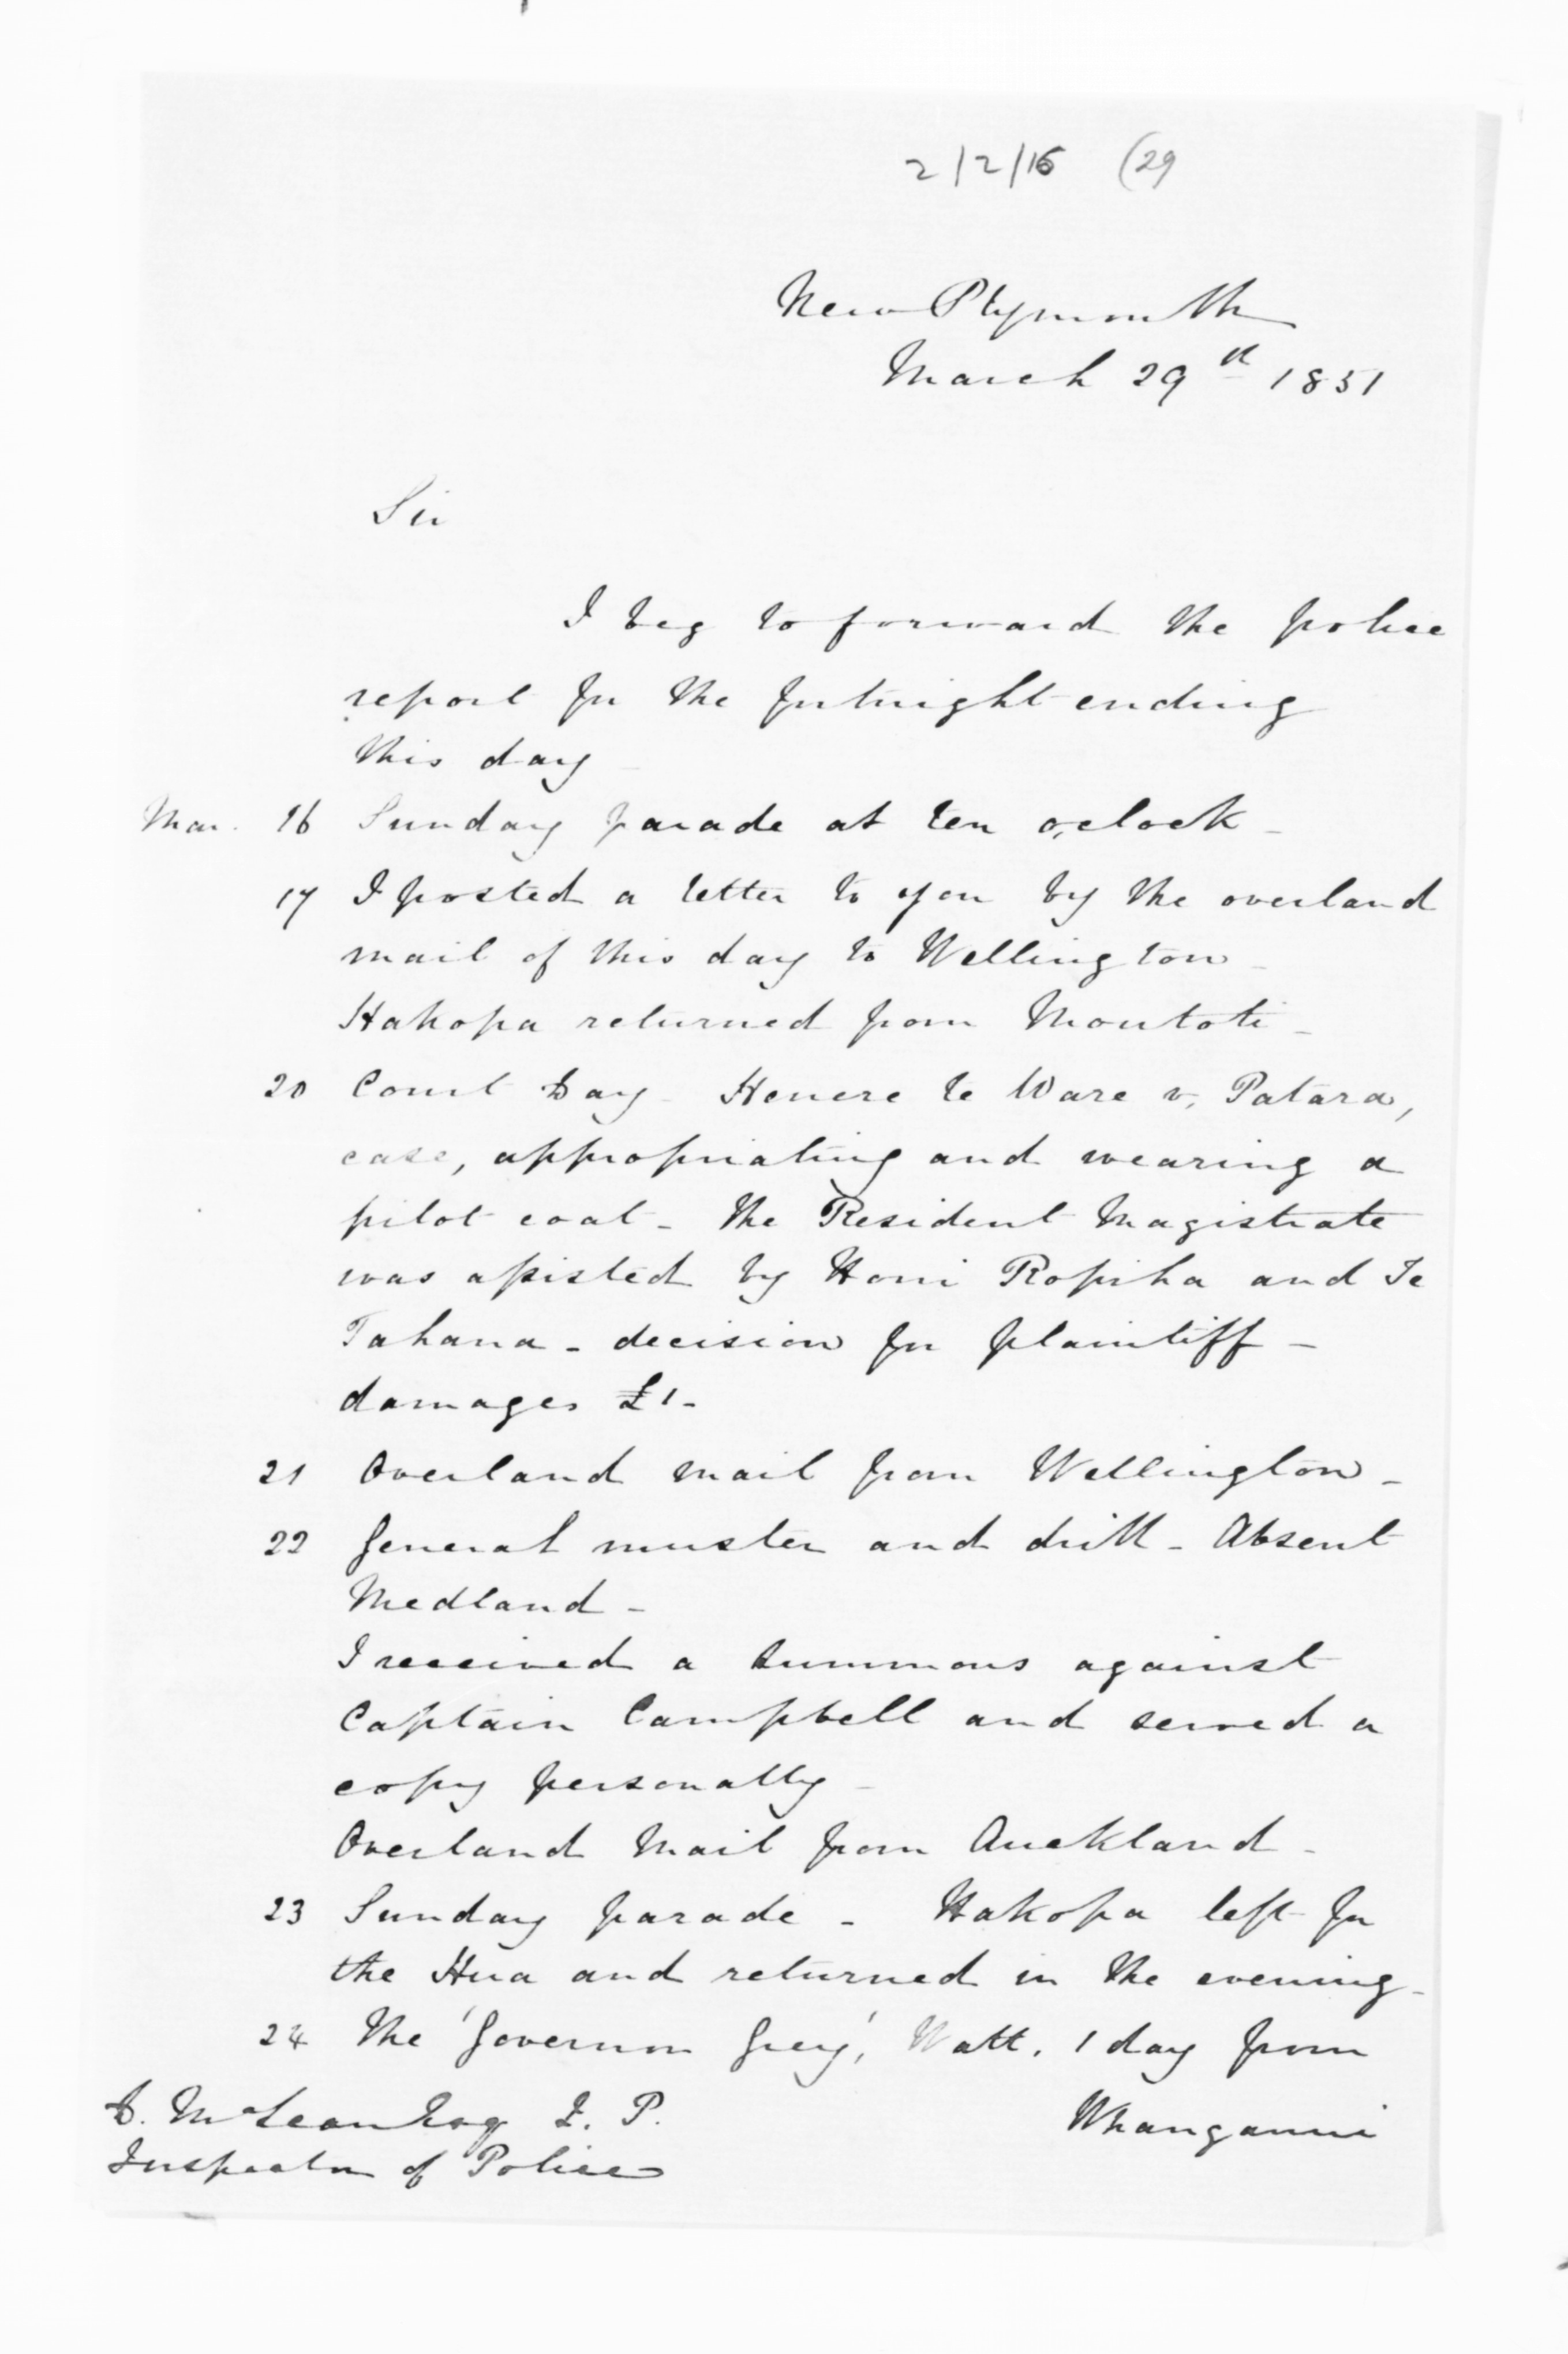 2/2/16 (29
New Plymouth
March 29th 1851
Sir
I beg to forward the police
report for the fortnight ending
this day
Mar. 16 Sunday parade at ten o,clock -
17 I posted a letter to you by the overland
mail of this day to Wellington -
Hakopa returned from Moutoti -
20 Court Day - Henere te Ware v. Patara,
case, appropriating and wearing a
pilot coat - the Resident Magistrate
was assisted by Honi Ropiha and Te
Tahana - decision for plaintiff -
damages £1 -
21 Overland mail from Wellington -
22 General muster and drill - Absent
Medland -
I received a summons against
Captain Campbell and served a
copy personally -
Overland Mail from Auckland -
23 Sunday parade - Hakopa left for
the Hua and returned in the evening -
24 The 'Governor Grey', Watt. 1 day from
Whanganui
D. McLean Esq I. P.
Inspector of Police